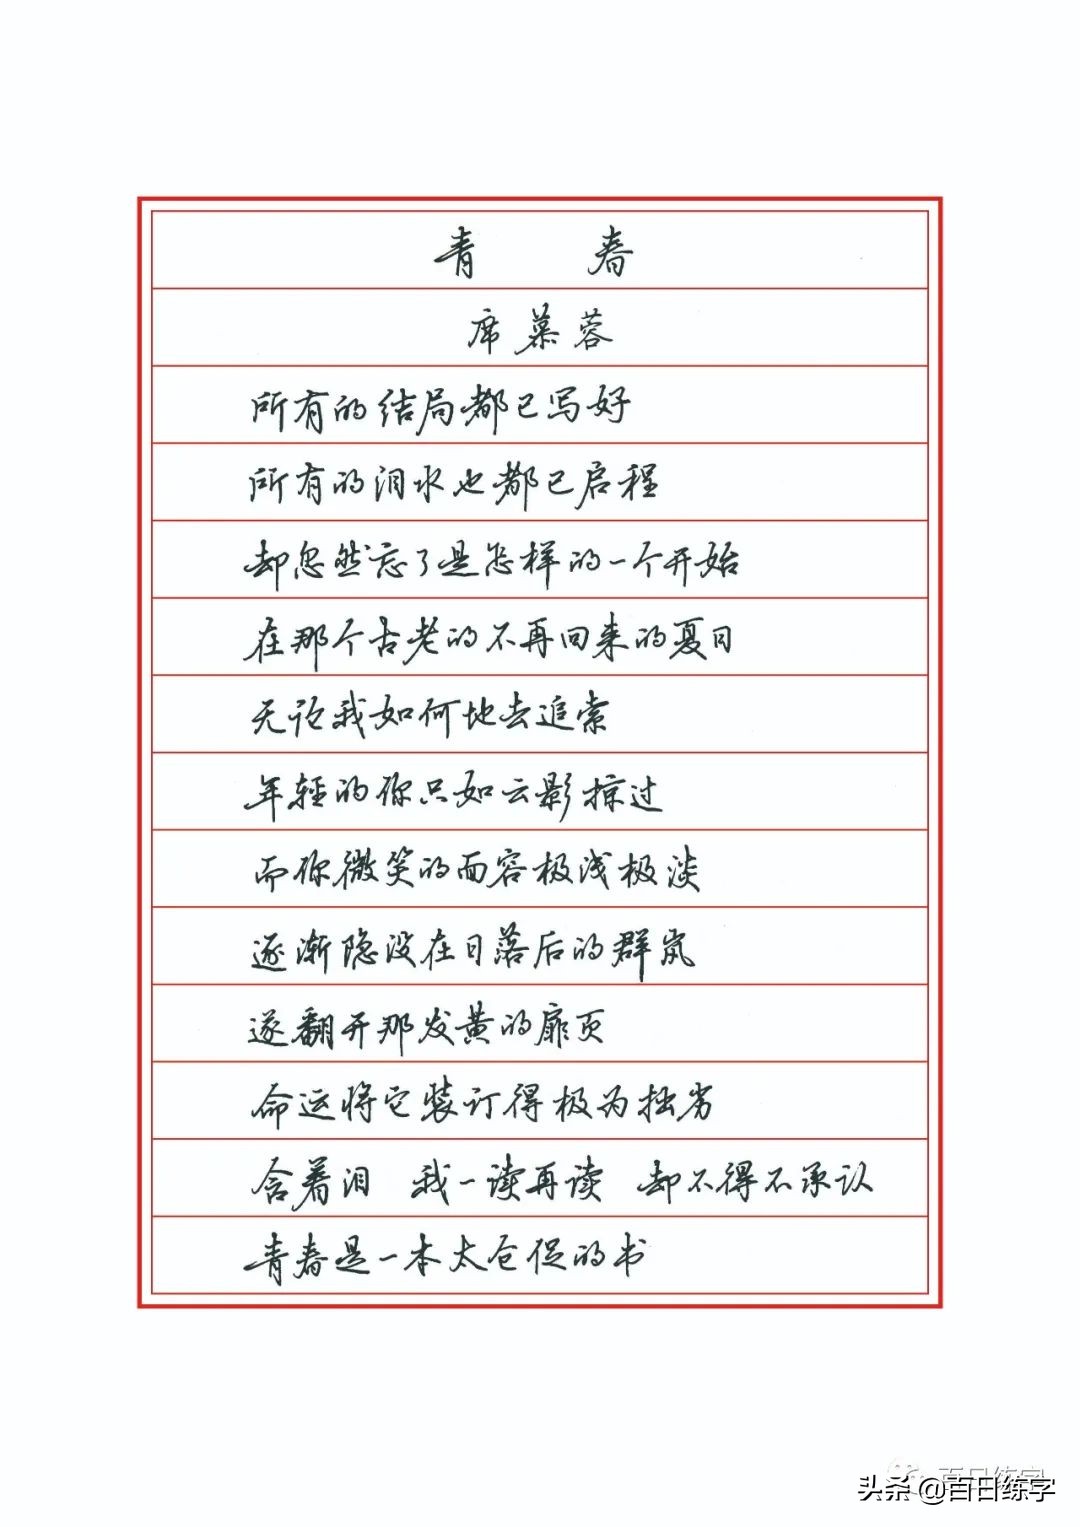 青 春
席慕蓉
所有的结局都已写好
所有的泪水也都已启程
却忽然忘了是怎样的一个开始
在那个古老的不再回来的夏日
无论我如何地去追索
年轻的你只如云影掠过
而你微笑的面容极浅极淡
逐渐隐没在日落后的群岚
遂翻开那发黄的扉页
命运将它装订得极为拙劣
含着泪 我一读再读 却不得不承认
青春是一本太仓促的书
百日练字
头条 @百日练字